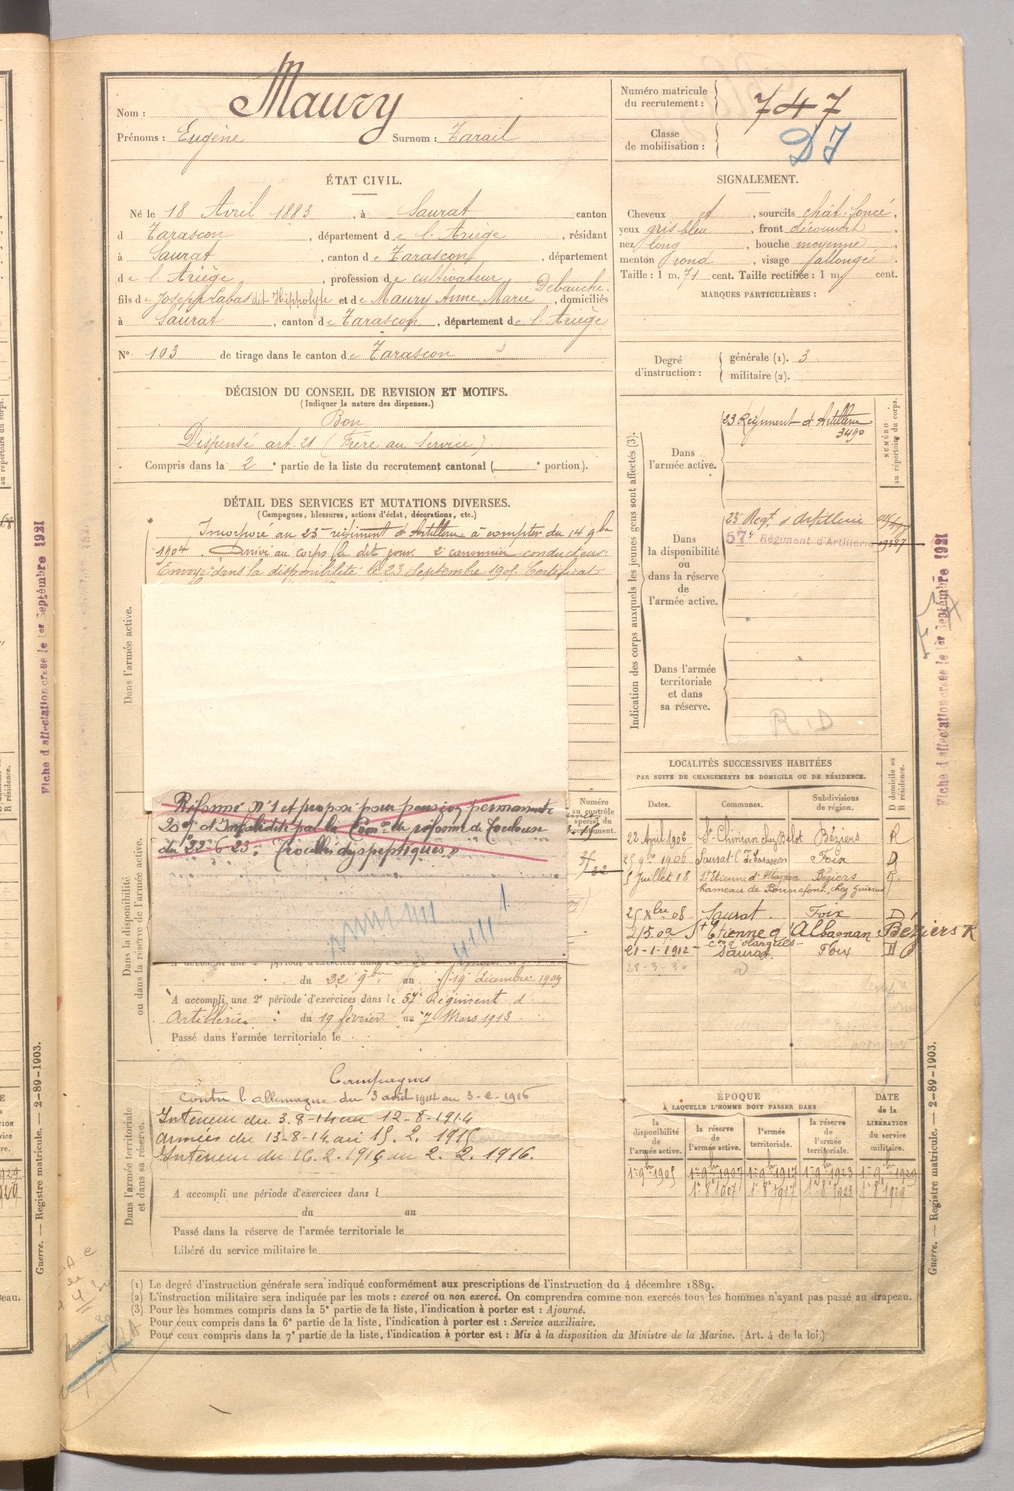 Nom : Maury
Prénoms : Eugène Surnom : Tarail
ÉTAT CIVIL.
Né le 18 Avril 1883, à Saurat canton
d Tarascon, département de l'Ariège, résidant
à Saurat, canton de Tarascon, département
de l'Ariège, profession de cultivateur
fils de Joseph Cabas dit Hippolyte et de Maury Anne Marie Debauche, domiciliés
à Saurat, canton de Tarascon, département de l'Ariège
N° 103 de tirage dans le canton de Tarascon
DÉCISION DU CONSEIL DE REVISION ET MOTIFS.
(Indiquer la nature des dispenses.)
Bon
Dispensé art. 21 (Frère au Service)
Compris dans la 2e partie de la liste du recrutement cantonal ( e portion).
DÉTAIL DES SERVICES ET MUTATIONS DIVERSES.
(Campagnes, blessures, actions d'éclat, décorations, etc.)
Dans l'armée active.
Incorporé au 23e régiment d'Artillerie à compter du 14 9bre
1904. Arrivé au corps le dit jour. 2e canonnier conducteur.
Envoyé dans la disponibilité le 23 Septembre 1905. Certificat
Dans la disponibilité
ou dans la réserve de l'armée active.
Réformé n° 1 et proposé pour pension permanente
20% d'Invalidité par la Comon de réforme de Toulouse
du 22-6-23. Troubles dyspeptiques »
du 22 9bre au 19 décembre 1909
A accompli une 2e période d'exercices dans le 57e Régiment d'
Artillerie du 19 février au 7 Mars 1913
Passé dans l'armée territoriale le
Dans l'armée territoriale
et dans sa réserve.
Campagnes
contre l'allemagne du 3 août 1914 au 3-2-1916
Intérieur du 3.8-14 au 12-8-1914
armées du 13-8-14 au 15.2.1915
Intérieur du 16.2.1915 au 2.2.1916.
A accompli une période d'exercices dans l
du au
Passé dans la réserve de l'armée territoriale le
Libéré du service militaire le
Numéro matricule
du recrutement : 747
Classe
de mobilisation : DJ
SIGNALEMENT.
Cheveux et, sourcils chât-foncé,
yeux gris bleu, front découvert
nez long, bouche moyenne
menton rond, visage allongé
Taille : 1 m. 71 cent. Taille rectifiée : 1 m cent.
MARQUES PARTICULIÈRES :
Degré
d'instruction :
générale (1). 3
militaire (2).
Indication des corps auxquels les jeunes gens sont affectés (3).
NUMÉRO
au répertoire du corps.
Dans
l'armée active.
23 Régiment d'Artillerie
3490
Dans
la disponibilité
ou
dans la réserve
de
l'armée active.
23e Regt d'Artillerie
57e Régiment d'Artillerie
Dans l'armée
territoriale
et dans
sa réserve.
R.D
LOCALITÉS SUCCESSIVES HABITÉES
PAR SUITE DE CHANGEMENTS DE DOMICILE OU DE RÉSIDENCE.
Dates. Communes. Subdivisions
de région.
D domicile ou
R résidence.
22 Avril 1906 St Chinian chez Belot Béziers R
25 9bre 1906 Saurat Foix D
5 Juillet 08 St Etienne d'Albagnan Béziers R.
hameau de Bonnefont, chez
25 Xbre 08 Saurat Foix D
St Etienne d'Albagnan Béziers R
cne d'olargues
21-1-1912 Saurat Foix D
28-3-30
ÉPOQUE
À LAQUELLE L'HOMME DOIT PASSER DANS
la
disponibilité
de
l'armée active.
la réserve
de
l'armée active.
l'armée
territoriale.
la réserve
de
l'armée
territoriale.
DATE
de la
LIBÉRATION
du service
militaire.
1er 9bre 1905 1er 9bre 1907 1er 9bre 1917 1er 9bre 1923 1er 9bre 1929
1er 8bre 1907 1er 8bre 1917 1er 8bre 1923 1er 8bre 1929
(1) Le degré d'instruction générale sera indiqué conformément aux prescriptions de l'instruction du 4 décembre 1889.
(2) L'instruction militaire sera indiquée par les mots : exercé ou non exercé. On comprendra comme non exercés tous les hommes n'ayant pas passé au drapeau.
(3) Pour les hommes compris dans la 5e partie de la liste, l'indication à porter est : Ajourné.
Pour ceux compris dans la 6e partie de la liste, l'indication à porter est : Service auxiliaire.
Pour ceux compris dans la 7e partie de la liste, l'indication à porter est : Mis à la disposition du Ministre de la Marine. (Art. 4 de la loi.)
Fiche d'affectation créée le 1er Septembre 1921
Fiche d'affectation créée le 1er Septembre 1921
Guerre. — Registre matricule. — 2-89-1903.
Guerre. — Registre matricule. — 2-89-1903.